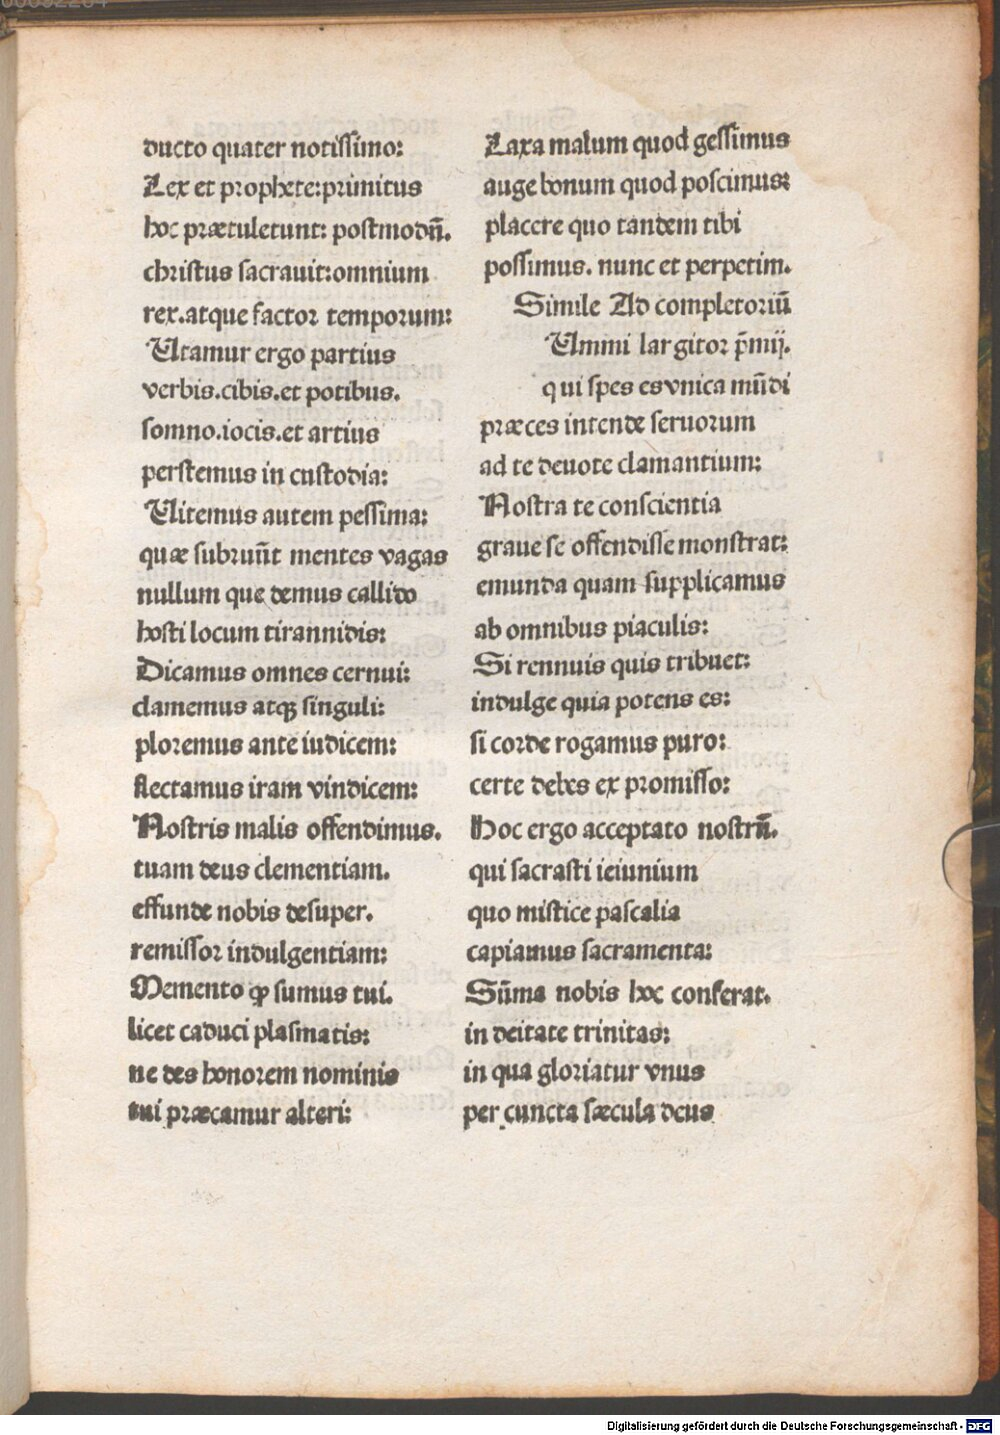 ducto quater notissimo:
Lex et prophete:primitus
hoc prætuletunt: postmodū.
christus sacrauit:omnium
rex.atque factor temporum:
Utamur ergo partius
verbis.cibis.et potibus.
somno.iocis.et artius
perstemus in custodia:
Uitemus autem pessima:
quæ subruūt mentes vagas
nullum que demus callido
hosti locum tirannidis:
Dicamus omnes cernui:
clamemus atqꝫ singuli:
ploremus ante iudicem:
flectamus iram vindicem:
Nostris malis offendimus.
tuam deus clementiam.
effunde nobis desuper.
remissor indulgentiam:
Memento ꝙ sumus tui.
licet caduci plasmatis:
ne des honorem nominis
tui præcamur alteri:
Laxa malum quod gessimus
auge bonum quod poscimus:
placere quo tandem tibi
possimus. nunc et perpetim.
Simile Ad completoriū
Ummi largitor p̄mij.
qui spes es vnica mūdi
præces intende seruorum
ad te deuote clamantium:
Nostra te conscientia
graue se offendisse monstrat:
emunda quam supplicamus
ab omnibus piaculis:
Si rennuis quis tribuet:
indulge quia potens es:
si corde rogamus puro:
certe debes ex promisso:
Hoc ergo acceptato nostrū.
qui sacrasti ieiunium
quo mistice pascalia
capiamus sacramenta:
Sūma nobis hoc conferat.
in deitate trinitas:
in qua gloriatur vnus
per cuncta sæcula deus
Digitalisierung gefördert durch die Deutsche Forschungsgemeinschaft - DFG